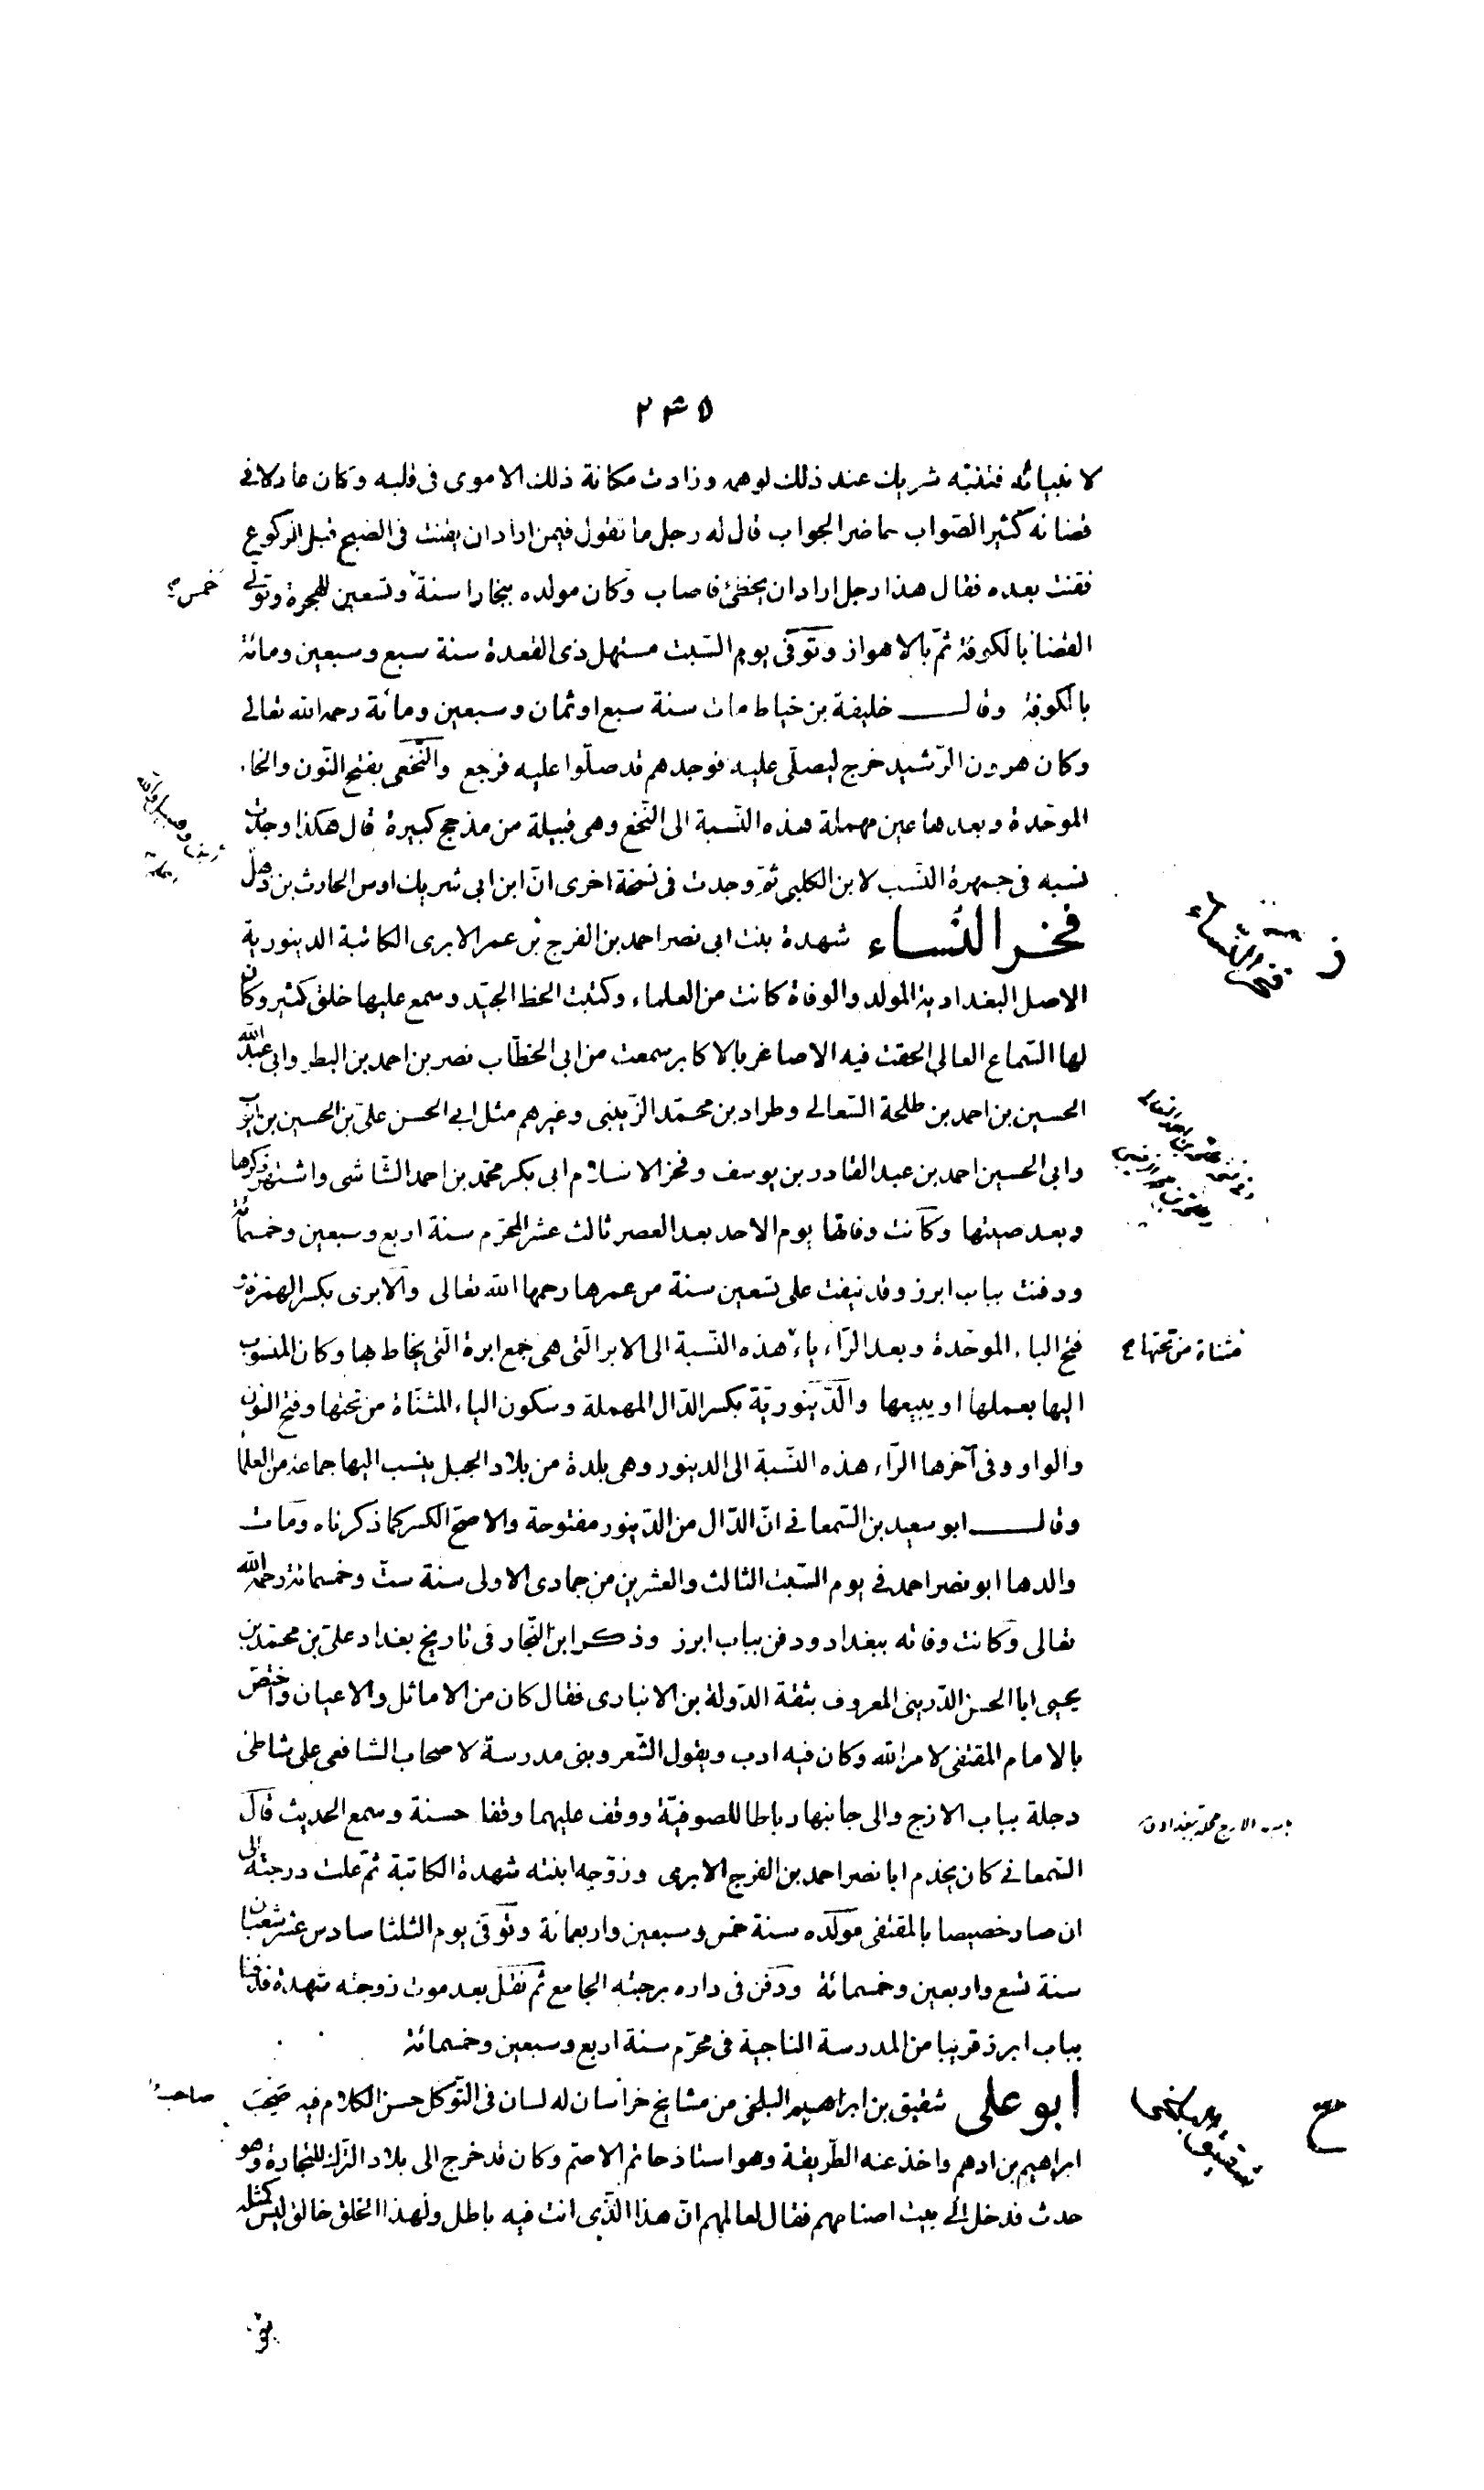 ٢٣٥
لانبيائه فتنبّه شريك عند ذلك لوهمه وزادت مكانة ذلك الاموى فى قلبه وكان عادلا فى
قضائه كثير الصّواب حاضر الجواب قال له رجل ما تقول فيمن اراد ان يقنت فى الصّبح قبل الركوع
فقنت بعده فقال هذا رجل اراد ان يخطئ فاصاب وكان مولده ببخارا سنة وتسعين للهجرة وتولى
خمس
القضا بالكوفة ثمّ بالاهواز وتوفى يوم السّبت مستهل ذى القعدة سنة سبع وسبعين ومائة
بالكوفة وقال خليفة بن خياط مات سنة سبع او ثمان وسبعين ومائة رحمه الله تعالى
وكان هرون الرّشيد خرج ليصلّى عليه فوجدهم قد صلّوا عليه فرجع والنّخعى بفتح النّون والخاء
الموحّدة وبعدها عين مهملة هذه النّسبة الى النّخع وهى قبيلة من مذحج كبيرة قال هكذا وجدت
نسبه فى جمهرة النّسب لابن الكلبى ثمّ وجدت فى نسخة اخرى انّ ابن ابى شريك اوس الحارث بن ذهل
فخر النّساء شهدة بنت ابى نصر احمد بن الفرج بن عمر الابرى الكاتبة الدينورية
فخر النّساء
الاصل البغدادية المولد والوفاة كانت من العلماء وكتبت الخط الجيّد وسمع عليها خلق كثير وكان
لها السّماع العالى الحقت فيه الاصاغر بالاكابر سمعت من ابى الخطّاب نصر بن احمد بن البطر وابى عبد الله
الحسين بن احمد بن طلحة النّعالى وطراد بن محمّد الزّينبى وغيرهم مثل ابى الحسن علىّ بن الحسين بن ايّوب
وابى الحسين احمد بن عبد القادر بن يوسف وفخر الاسلام ابى بكر محمّد بن احمد الشّاشى واشتهر ذكرها
وبعد صيتها وكانت وفاتها يوم الاحد بعد العصر ثالث عشر المحرّم سنة اربع وسبعين وخمسمائة
ودفنت بباب ابرز وقد نيفت على تسعين سنة من عمرها رحمها الله تعالى والابرى بكسر الهمزة و
فتح الباء الموحّدة وبعد الرّاء ياء هذه النّسبة الى الابر الّتى هى جمع ابرة الّتى يخاط بها وكان المنسوب
مثناة من تحتها صح
اليها بعملها او يبيعها والدّينوريّة بكسر الدّال المهملة وسكون الياء المثنّاة من تحتها وفتح النون
والواو وفى آخرها الرّاء هذه النّسبة الى الدينور وهى بلدة من بلاد الجبل ينسب اليها جماعة من العلما
وقال ابو سعيد بن السّمعانى انّ الدّال من الدّينور مفتوحة والاصحّ الكسر كما ذكرناه ومات
والدها ابو نصر احمد فى يوم السّبت الثالث والعشرين من جمادى الاولى سنة ستّ وخمسمائة رحمه الله
تعالى وكانت وفاته ببغداد ودفن بباب ابرز وذكر ابن النّجار فى تاريخ بغداد علىّ بن محمّد بن
يحيى ابا الحسن الدّرينى المعروف بثقة الدّولة بن الانبارى فقال كان من الاماثل والاعيان واختصّ
بالامام المقتفى لامر الله وكان فيه ادب ويقول الشّعر وبنى مدرسة لاصحاب الشافعى على شاطئ
دجلة بباب الازج والى جانبها رباطا للصوفيّة ووقف عليهما وقفا حسنة وسمع الحديث قال
السّمعانى كان يخدم ابا نصر احمد بن الفرج الابرى وزوّجه ابنته شهدة الكاتبة ثمّ علت درجته الى
ان صار خصيصا بالمقتفى مولده سنة خمس وسبعين واربعمائة وتوفّى يوم الثلثا سادس عشر شعبان
سنة تسع واربعين وخمسمائة ودفن فى داره برحبته الجامع ثم نقل بعد موت زوجته شهدة فدفنا
بباب ابرز قريبا من المدرسة الناجية فى محرّم سنة اربع وسبعين وخمسمائة
ابو على شقيق بن ابراهيم البلخى من مشايخ خراسان له لسان فى التّوكل حسن الكلام فيه صحب
شقيق البلخى
صاحب
ابراهيم بن ادهم واخذ عنه الطّريقة وهو استاذ حاتم الاصم وكان قد خرج الى بلاد التّرك للتجارة وهو
حدث فدخل الى بيت اصنامهم فقال لعالمهم انّ هذا الّذى انت فيه باطل ولهذا الخلق خالق ليس كمثله